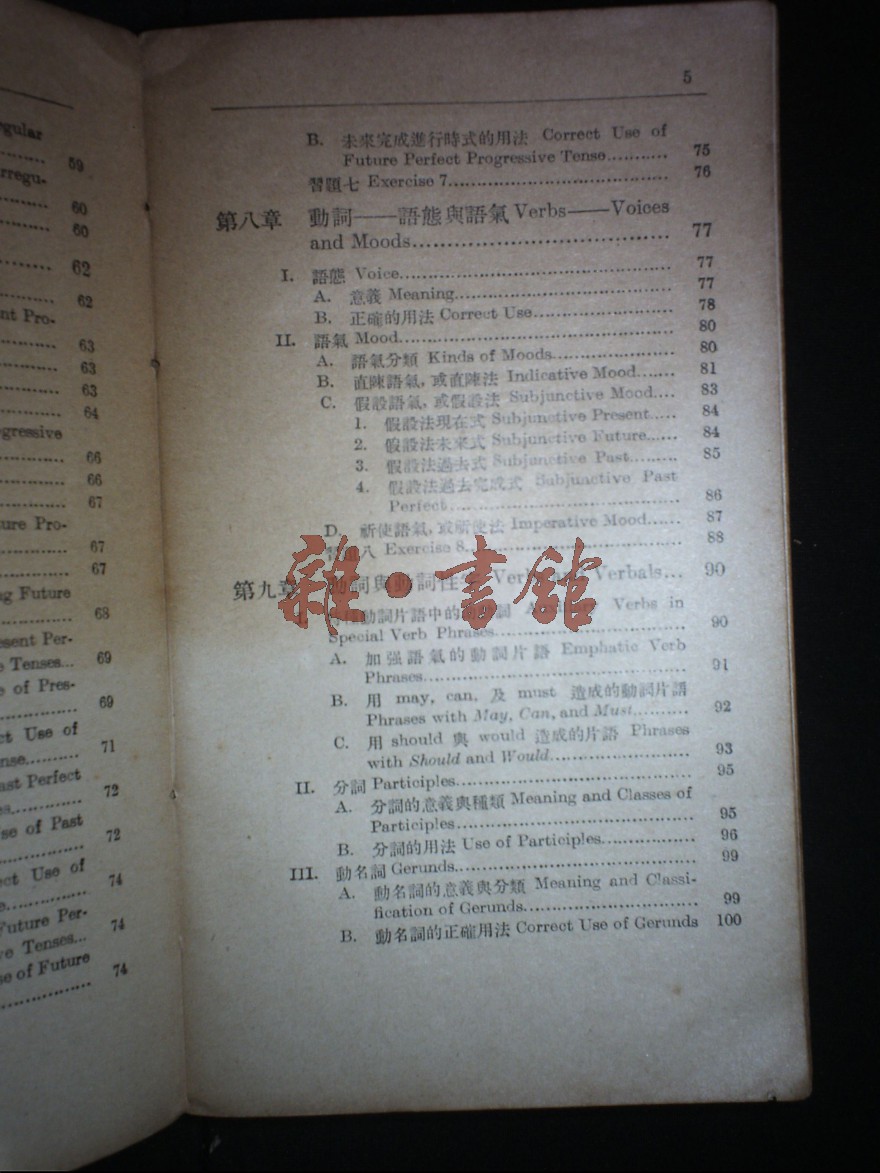 egular
59
rregu-
60
60
62
62
ent Pro-
63
63
63
64
ogressive
66
66
67
ture Pro-
67
67
ng Future
68
esent Per-
e Tenses... 69
e of Pres-
69
ct Use of
nse.......... 71
ast Perfect
es............. 72
se of Past
72
ect Use of
e.............. 74
Future Per-
ve Tenses... 74
se of Future
74
5
B. 未來完成進行時式的用法 Correct Use of
Future Perfect Progressive Tense........... 75
習題七 Exercise 7........................................ 76
第八章 動詞——語態與語氣 Verbs——Voices
and Moods.................................... 77
I. 語態 Voice................................................ 77
A. 意義 Meaning...................................... 77
B. 正確的用法 Correct Use......................... 78
II. 語氣 Mood................................................ 80
A. 語氣分類 Kinds of Moods...................... 80
B. 直陳語氣，或直陳法 Indicative Mood....... 81
C. 假設語氣，或假設法 Subjunctive Mood.... 83
1. 假設法現在式 Subjunctive Present..... 84
2. 假設法未來式 Subjunctive Future...... 84
3. 假設法過去式 Subjunctive Past......... 85
4. 假設法過去完成式 Subjunctive Past
Perfect........................................ 86
D. 祈使語氣，或祈使法 Imperative Mood...... 87
習題八 Exercise 8........................................ 88
第九章 動詞與動詞性 Verbals... 90
動詞片語中的 Verbs in
Special Verb Phrases............................... 90
A. 加强語氣的動詞片語 Emphatic Verb
Phrases............................................. 91
B. 用 may, can, 及 must 造成的動詞片語
Phrases with May, Can, and Must.......... 92
C. 用 should 與 would 造成的片語 Phrases
with Should and Would........................ 93
II. 分詞 Participles......................................... 95
A. 分詞的意義與種類 Meaning and Classes of
Participles......................................... 95
B. 分詞的用法 Use of Participles............... 96
III. 動名詞 Gerunds......................................... 99
A. 動名詞的意義與分類 Meaning and Classi-
fication of Gerunds............................. 99
B. 動名詞的正確用法 Correct Use of Gerunds 100
雜·書館